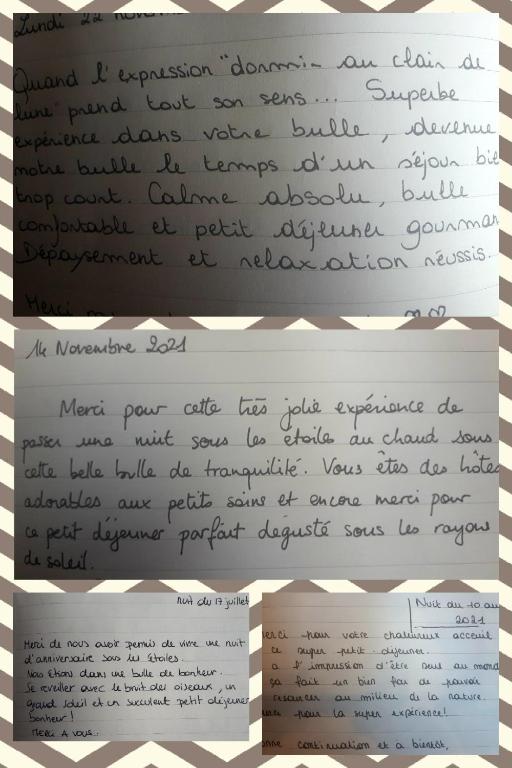 Lundi 22 novem
Quand l'expression "dormir au clair de
lune" prend tout son sens... Superbe
expérience dans votre bulle, devenue
notre bulle le temps d'un séjour bie
trop court. Calme absolu, bulle
comfortable et petit déjeuner gourman
Dépaysement et relaxation réussis.
Merci
14 Novembre 2021
Merci pour cette très jolie expérience de
passer une nuit sous les étoiles au chaud sous
cette belle bulle de tranquilité. Vous êtes des hôtes
adorables aux petits soins et encore merci pour
ce petit déjeuner parfait dégusté sous les rayons
de soleil.
Nuit du 17 juillet
Merci de nous avoir permis de vivre une nuit
d'anniversaire sous les étoiles.
Nous étions dans une bulle de bonheur.
Se reveiller avec le bruit des oiseaux, un
grand soleil et un succulent petit déjeuner
bonheur!
Merci A vous..
Nuit du 10 aou
2021
erci pour votre chaleureux acceuil
ce super petit-déjeuner.
a l'impression d'être seul au mond
ça fait un bien fou de pouvoir
ressourcer au milieu de la nature.
pour la super expérience!
onne continuation et a bientôt,